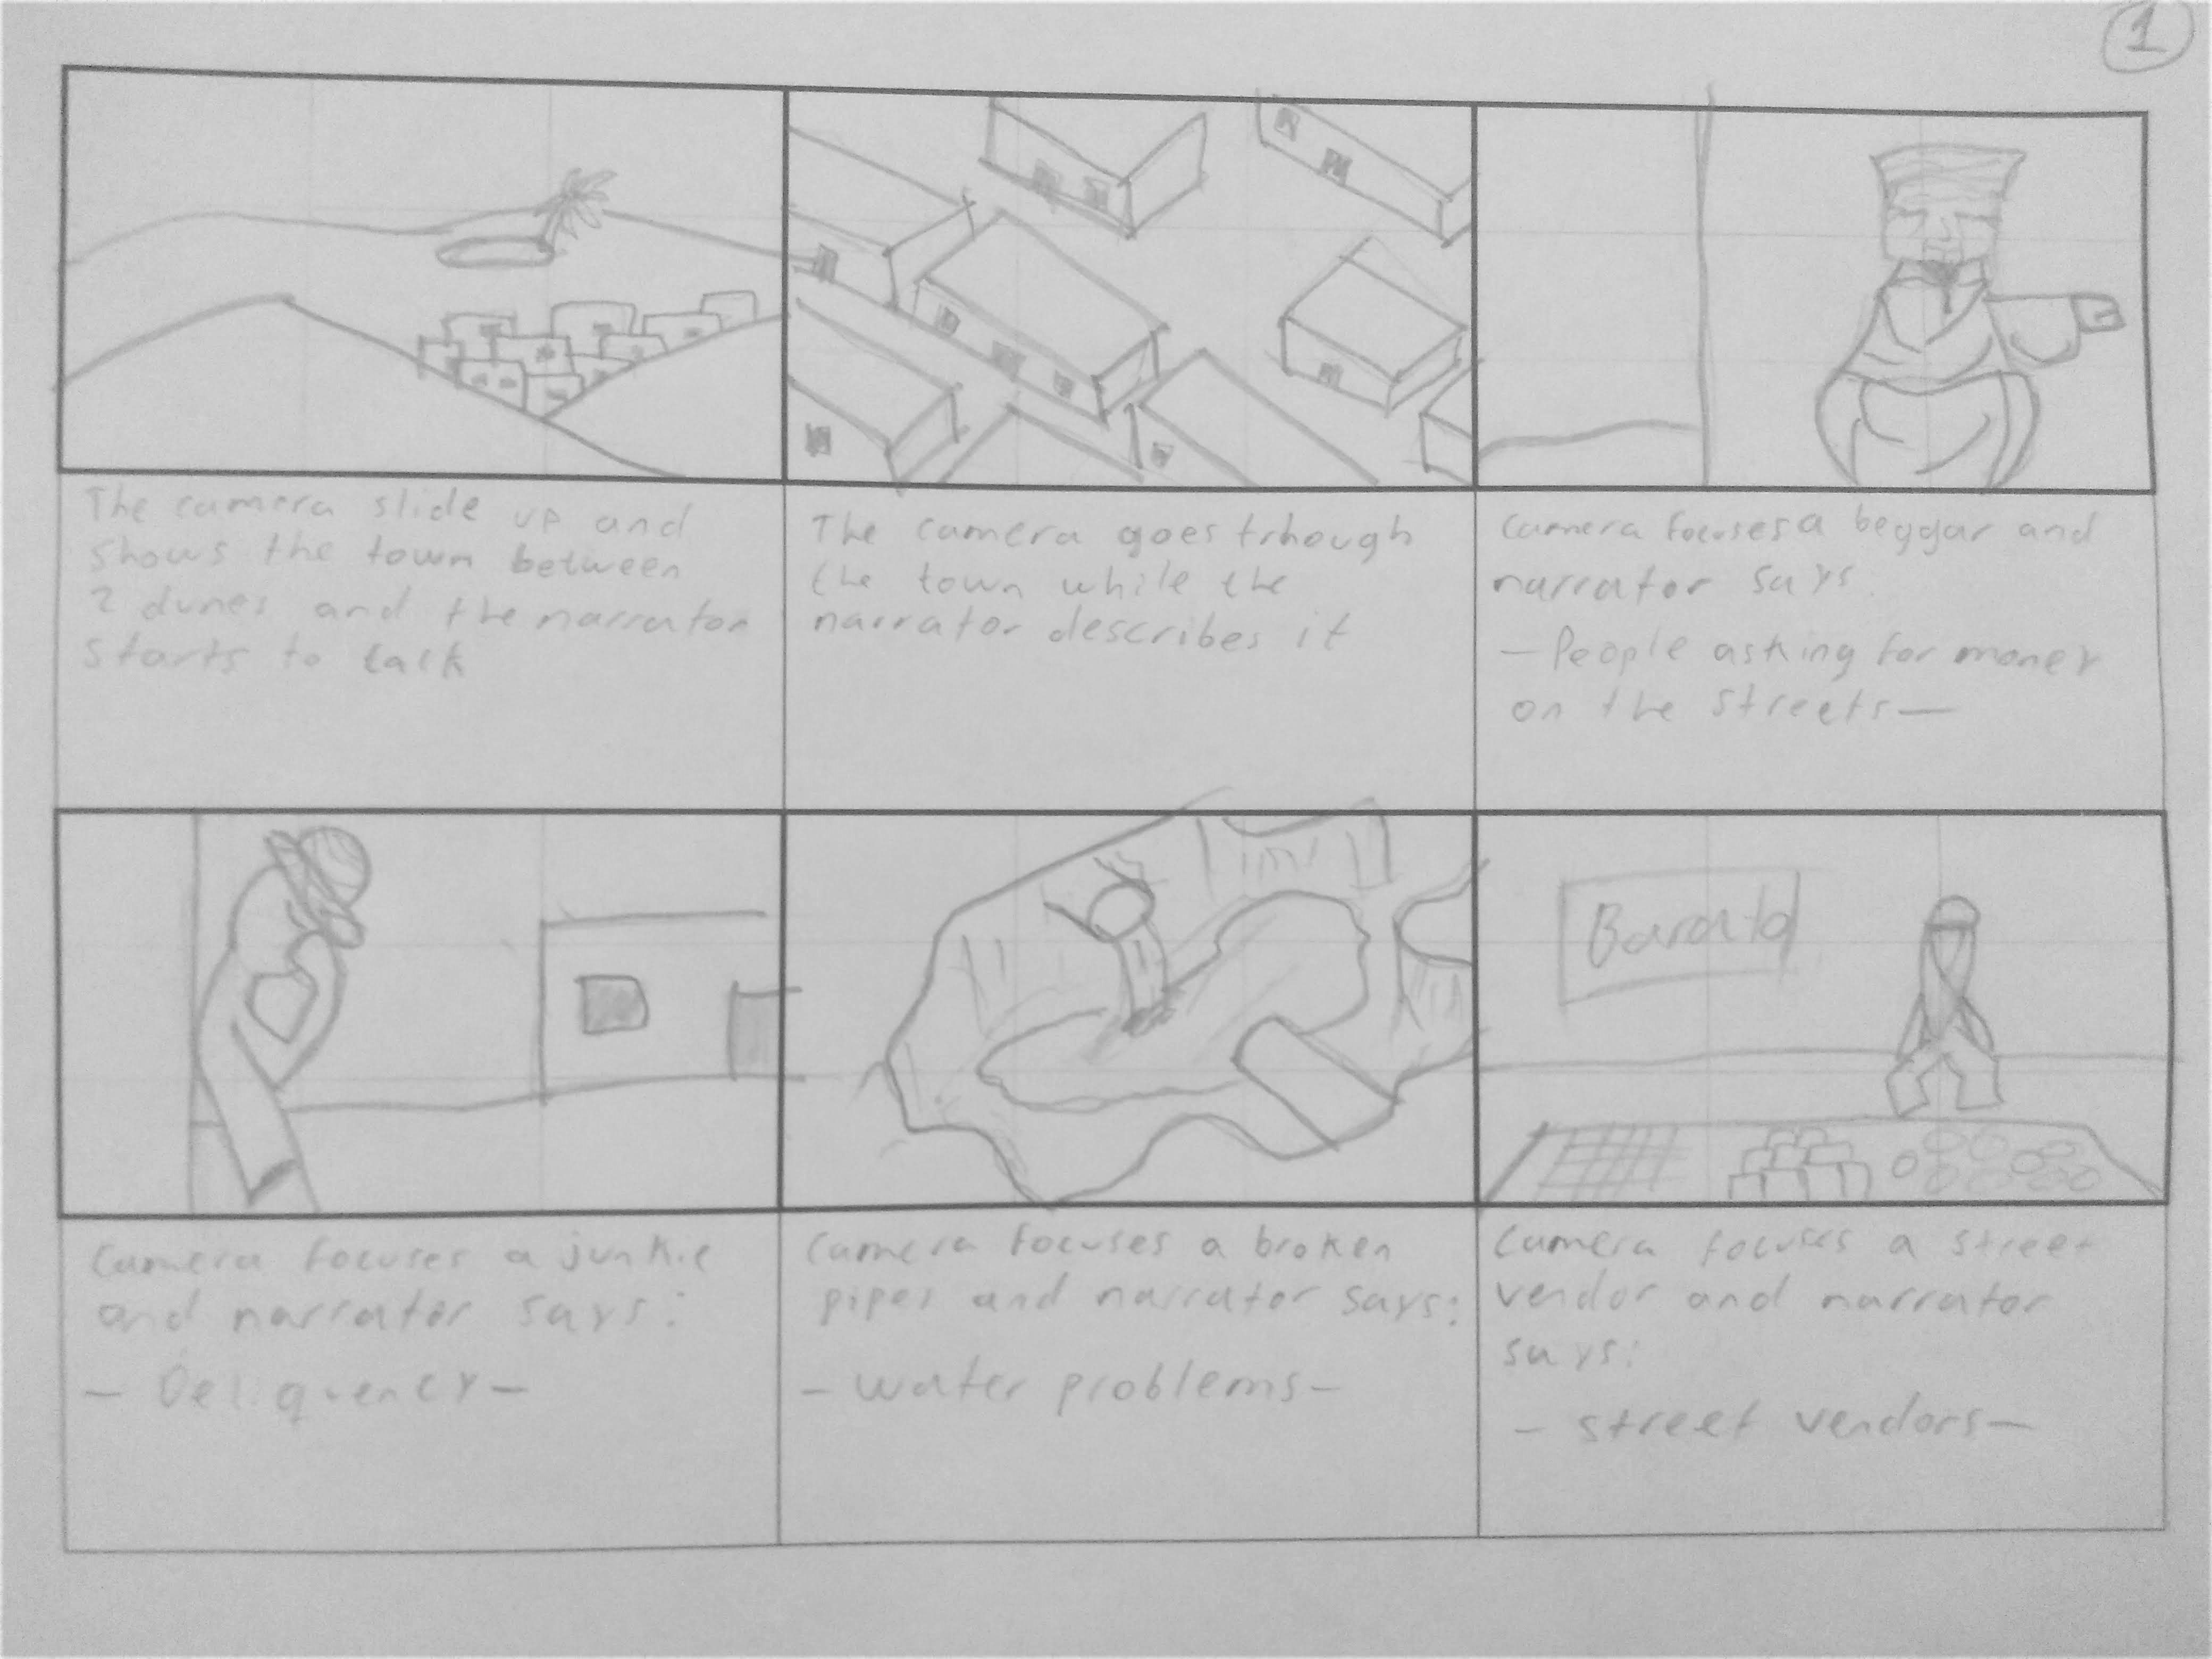 1
The camera slide up and
shows the town between
2 dunes and the narrator
starts to talk
The camera goes trhough
the town while the
narrator describes it
camera focuses a beggar and
narrator says.
—People asking for money
on the streets—
Barato
Camera focuses a junkie
and narrator says:
— Deliquency —
Camera focuses a broken
pipes and narrator says:
— water problems —
Camera focuses a street
vendor and narrator
says:
— street vendors —